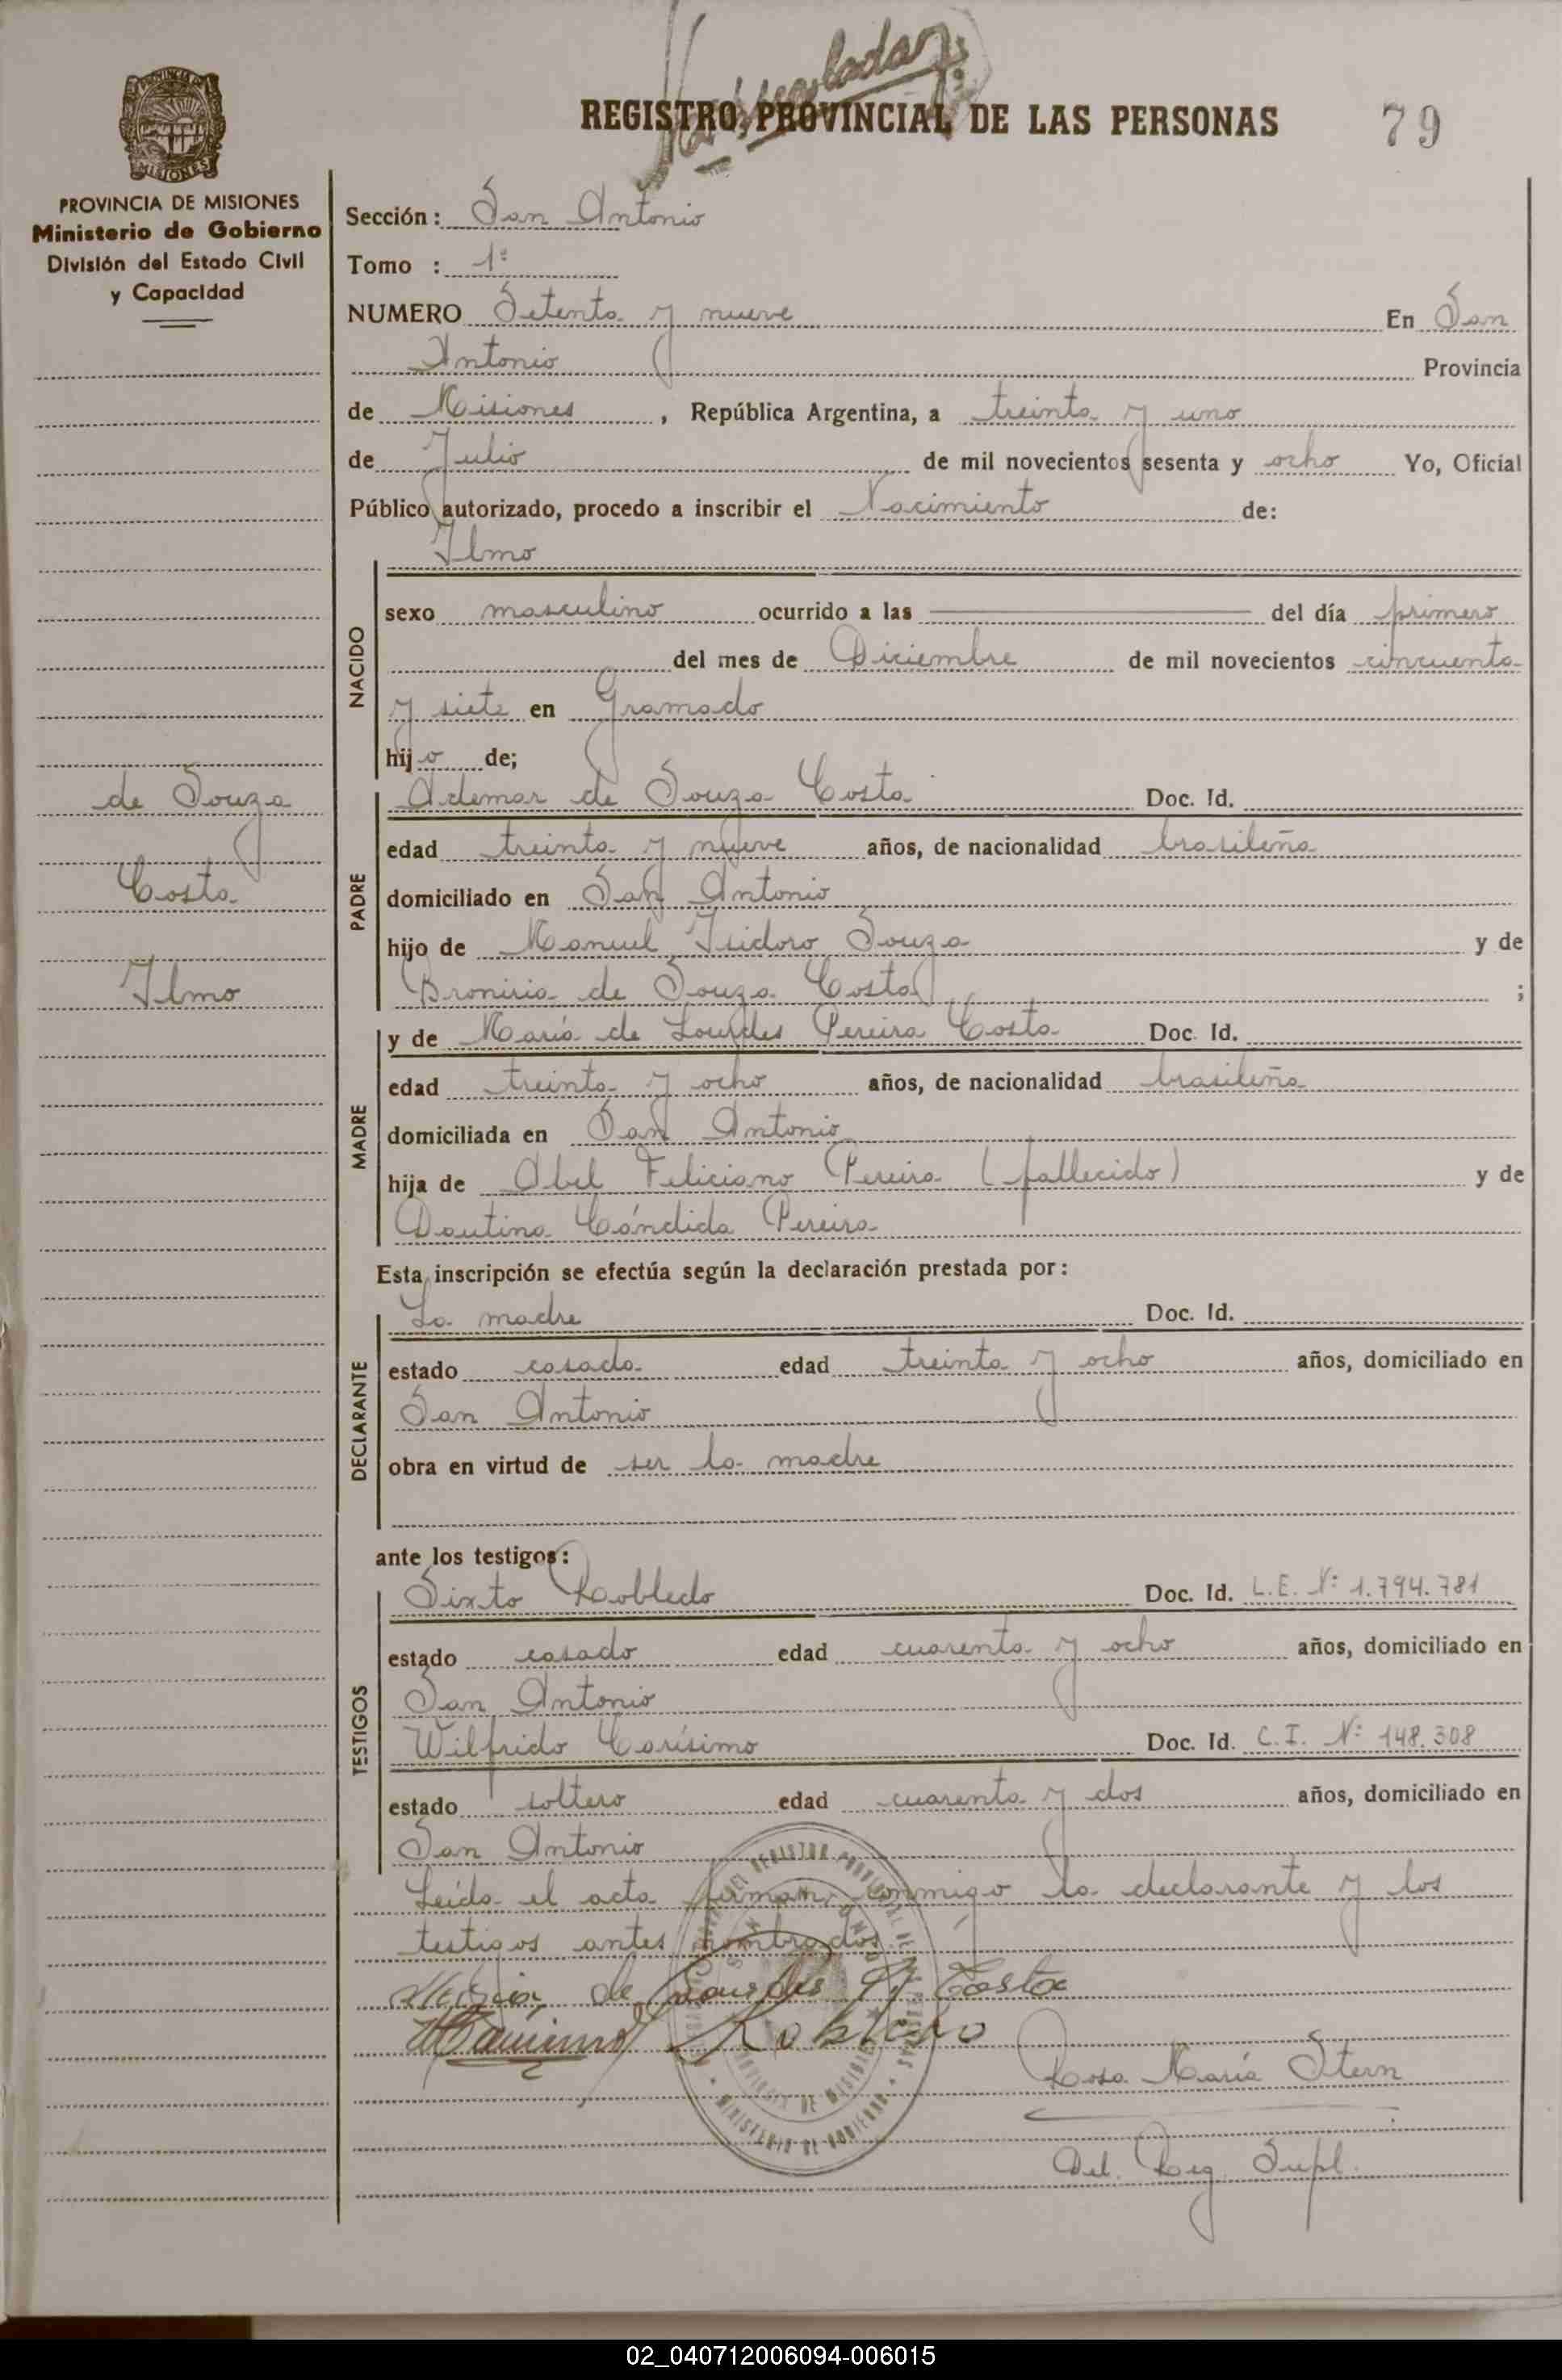 REGISTRO PROVINCIAL DE LAS PERSONAS 79
MISIONES
PROVINCIA DE MISIONES
Ministerio de Gobierno
División del Estado Civil
y Capacidad
Sección: San Antonio
Tomo : 1º
NUMERO Setenta y nueve En San
Antonio Provincia
de Misiones, República Argentina, a treinta y uno
de Julio de mil novecientos sesenta y ocho Yo, Oficial
Público autorizado, procedo a inscribir el Nacimiento de:
Ilmo
NACIDO
sexo masculino ocurrido a las ——— del día primero
del mes de Diciembre de mil novecientos cincuenta
y siete en Gramado
hijo de;
de Souza
Costa
Ilmo
PADRE
Ademar de Souza Costa Doc. Id.
edad treinta y nueve años, de nacionalidad brasileña
domiciliado en San Antonio
hijo de Manuel Isidoro Souza y de
de Souza Costa ;
MADRE
y de María de Lourdes Pereira Costa Doc. Id.
edad treinta y ocho años, de nacionalidad brasileña
domiciliada en San Antonio
hija de Abel Feliciano Pereira (fallecido) y de
Cándida Pereira
Esta inscripción se efectúa según la declaración prestada por:
DECLARANTE
La madre Doc. Id.
estado casada edad treinta y ocho años, domiciliado en
San Antonio
obra en virtud de ser la madre
ante los testigos:
TESTIGOS
Sixto Robledo Doc. Id. L.E. Nº 1.794.781
estado casado edad cuarenta y ocho años, domiciliado en
San Antonio
Wilfrido Carísimo Doc. Id. C.I. Nº 148.308
estado soltero edad cuarenta y dos años, domiciliado en
San Antonio
Leída el acta firman conmigo la declarante y los
testigos antes nombrados
Maria de Lourdes P Costa
Robledo
Rosa María Stern
Del. Reg. Supl.
02_040712006094-006015